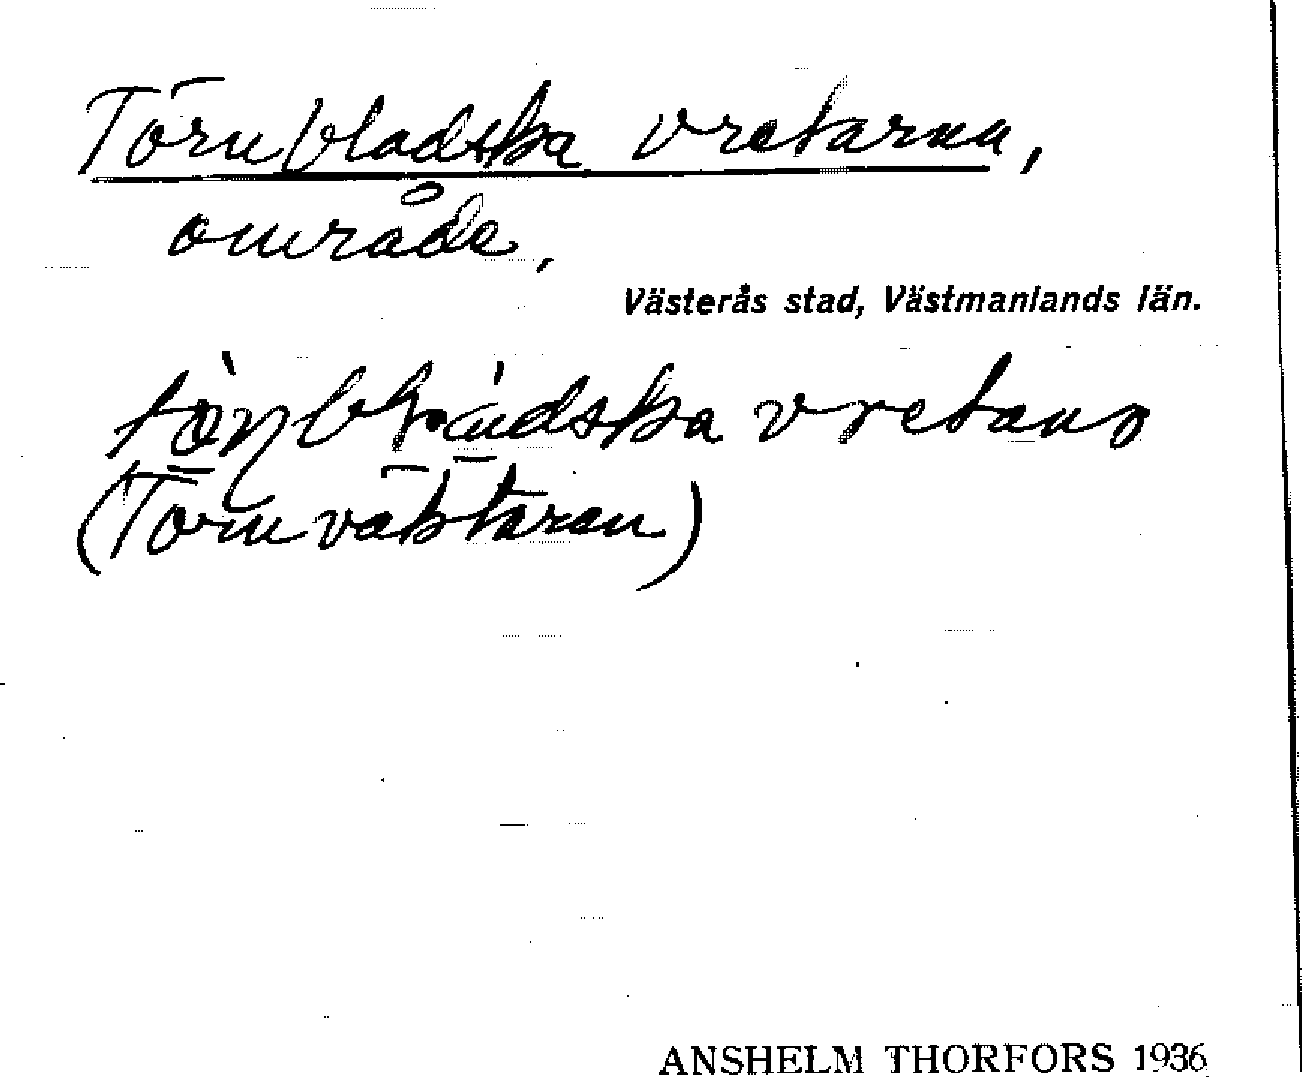 Törnbladska vretarna,
område,
Västerås stad, Västmanlands län.
vretana
(Törnväktaren)
ANSHELM THORFORS 1936